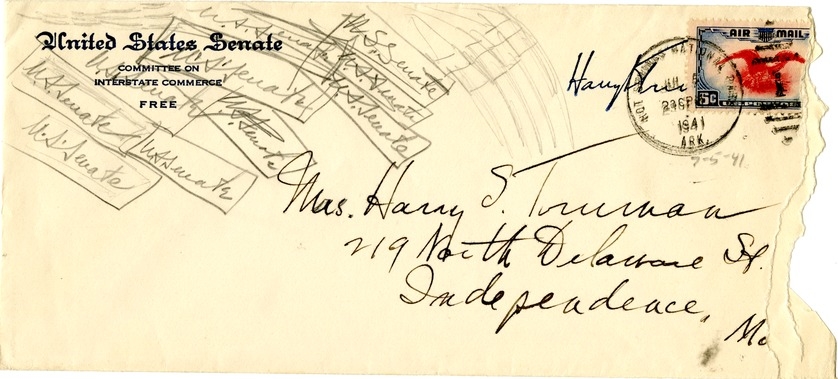 United States Senate
COMMITTEE ON
INTERSTATE COMMERCE
FREE
U.S. Senate
U.S. Senate
U.S. Senate
U.S. Senate
U.S. Senate
U.S. Senate
U.S. Senate
U.S. Senate
U.S. Senate
U.S. Senate
Harry
AIR MAIL
6c
HOT NATIONAL
JUL 5
1941
ARK.
7-5-41
Mrs. Harry S. Truman
219 North Delaware St.
Independence,
Mo